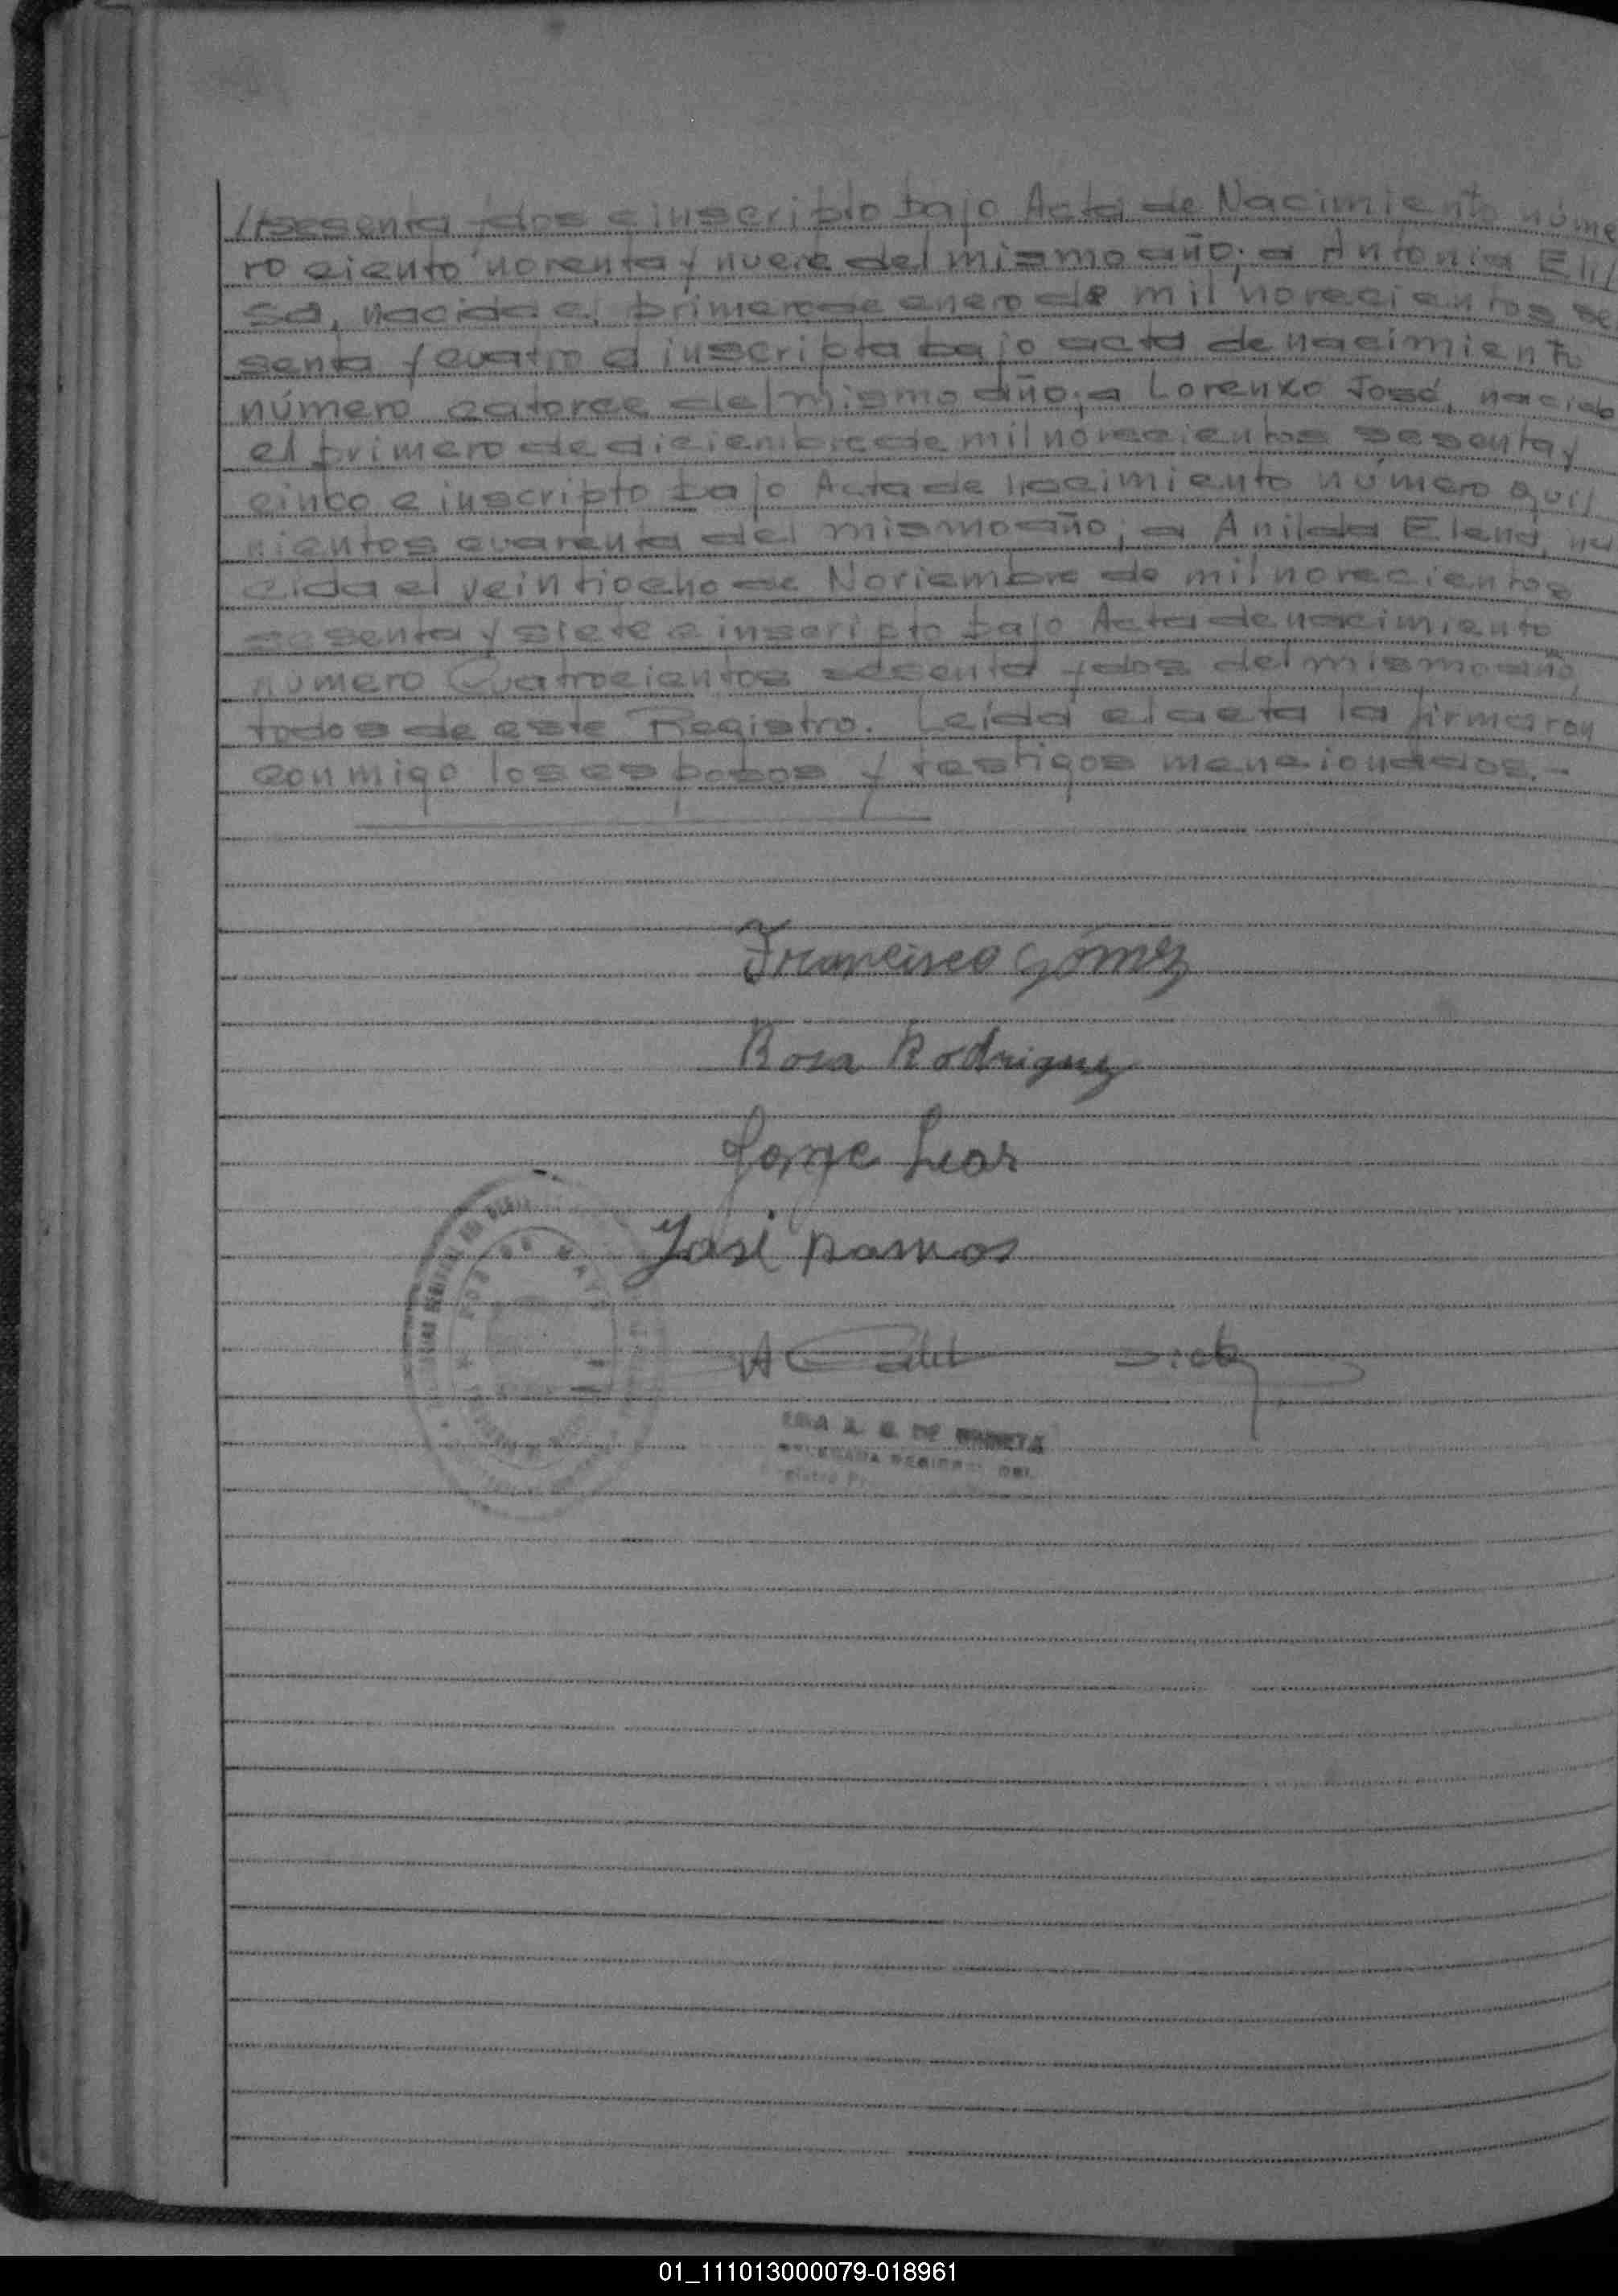 //sesenta y dos e inscripto bajo Acta de Nacimiento núme
ro ciento noventa y nueve del mismo año; a Antonia Eli/
sa, nacida el primero de enero de mil novecientos se
senta y cuatro e inscripta bajo acta de nacimiento
número catorce del mismo año; a Lorenzo José, nacido
el primero de diciembre de mil novecientos sesenta y
cinco e inscripto bajo Acta de nacimiento número qui/
nientos cuarenta del mismo año; a Anilda Elena, na
cida el veintiocho de Noviembre de mil novecientos
sesenta y siete e inscripto bajo Acta de nacimiento
número Cuatrocientos sesenta y dos del mismo año,
todos de este Registro. Leída el acta la firmaron
conmigo los esposos y testigos mencionados.-
Francisco Gómez
Rosa Rodriguez
Jorge
José Ramos
DE
01_111013000079-018961